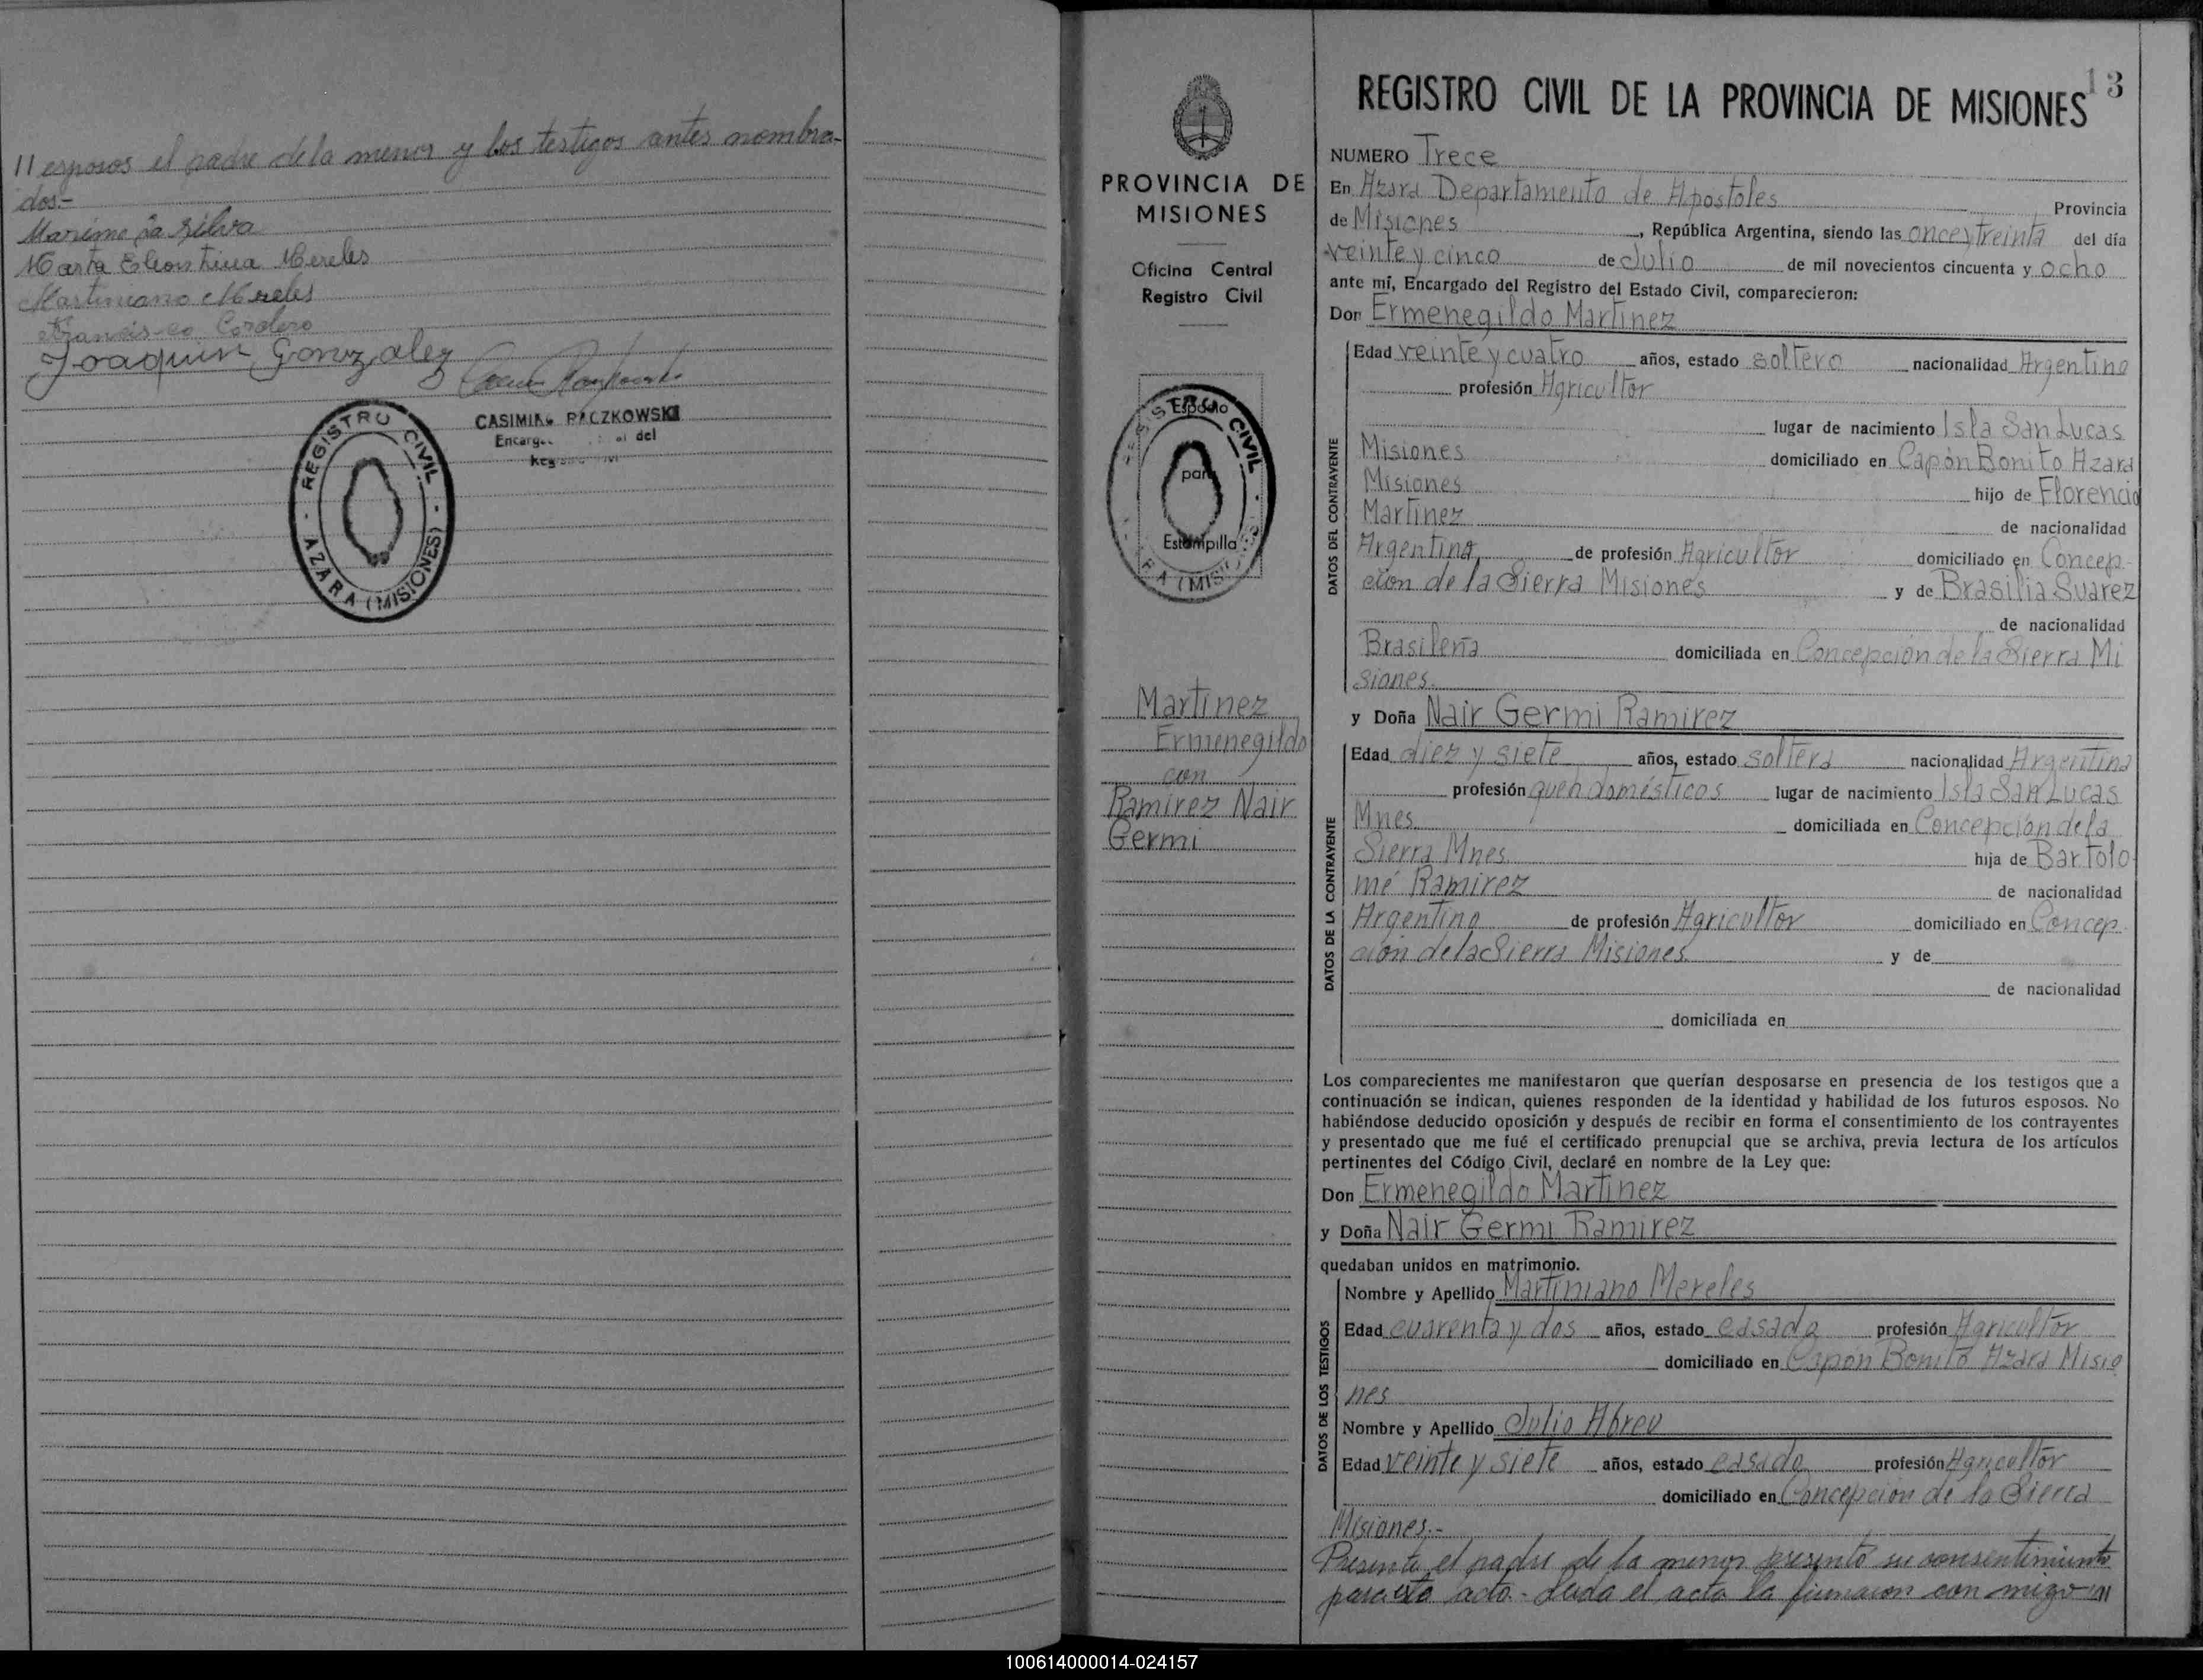 11 esposos el padre de la menor y los testigos antes nombra-
dos.-
Maximo Da Silva
Marta Eleontina Mereles
Martiniano Mereles
Francisco Cordero
Joaquin Gonzalez
CASIMIRO PACZKOWSKI
Encarg del
REGISTRO CIVIL
AZARA (MISIONES)
PROVINCIA DE
MISIONES
Oficina Central
Registro Civil
Espacio
para
Estampilla
Martinez
Ermenegildo
con
Ramirez Nair
Germi
13
REGISTRO CIVIL DE LA PROVINCIA DE MISIONES
NUMERO Trece
En Azara Departamento de Apostoles Provincia
de Misiones, República Argentina, siendo las once y treinta del día
veinte y cinco de Julio de mil novecientos cincuenta y ocho
ante mí, Encargado del Registro del Estado Civil, comparecieron:
Don Ermenegildo Martinez
DATOS DEL CONTRAYENTE
Edad veinte y cuatro años, estado soltero nacionalidad Argentino
profesión Agricultor
lugar de nacimiento Isla San Lucas
Misiones domiciliado en Capón Bonito Azara
Misiones hijo de Florencio
Martinez de nacionalidad
Argentina de profesión Agricultor domiciliado en Concep-
cion de la Sierra Misiones y de Brasilia Suarez
de nacionalidad
Brasileña domiciliada en Concepción de la Sierra Mi
siones.
y Doña Nair Germi Ramirez
DATOS DE LA CONTRAYENTE
Edad diez y siete años, estado soltera nacionalidad Argentina
profesión queh domésticos lugar de nacimiento Isla San Lucas
Mnes. domiciliada en Concepción de la
Sierra Mnes. hija de Bartolo-
mé Ramirez de nacionalidad
Argentino de profesión Agricultor domiciliado en Concep-
ción de la Sierra Misiones. y de
de nacionalidad
domiciliada en
Los comparecientes me manifestaron que querían desposarse en presencia de los testigos que a
continuación se indican, quienes responden de la identidad y habilidad de los futuros esposos. No
habiéndose deducido oposición y después de recibir en forma el consentimiento de los contrayentes
y presentado que me fué el certificado prenupcial que se archiva, previa lectura de los artículos
pertinentes del Código Civil, declaré en nombre de la Ley que:
Don Ermenegildo Martinez
y Doña Nair Germi Ramirez
quedaban unidos en matrimonio.
DATOS DE LOS TESTIGOS
Nombre y Apellido Martiniano Mereles
Edad cuarenta y dos años, estado casado profesión Agricultor
domiciliado en Capon Bonito Azara Misio
nes
Nombre y Apellido Julio Abreu
Edad veinte y siete años, estado casado profesión Agricultor
domiciliado en Concepcion de la Sierra
Misiones.-
Presente el padre de la menor presentó su consentimiento
para este acto.- Leida el acta la firmaron con migo 11
100614000014-024157